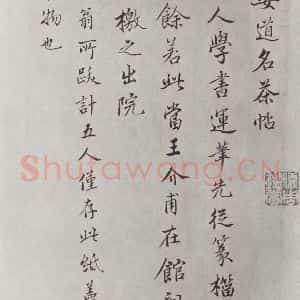 道名茶帖
人學書運筆先從篆
餘若此當王介甫在館
檄之出院
翁所跋計五人僅存此紙蓋
物也
Shufawang.CN